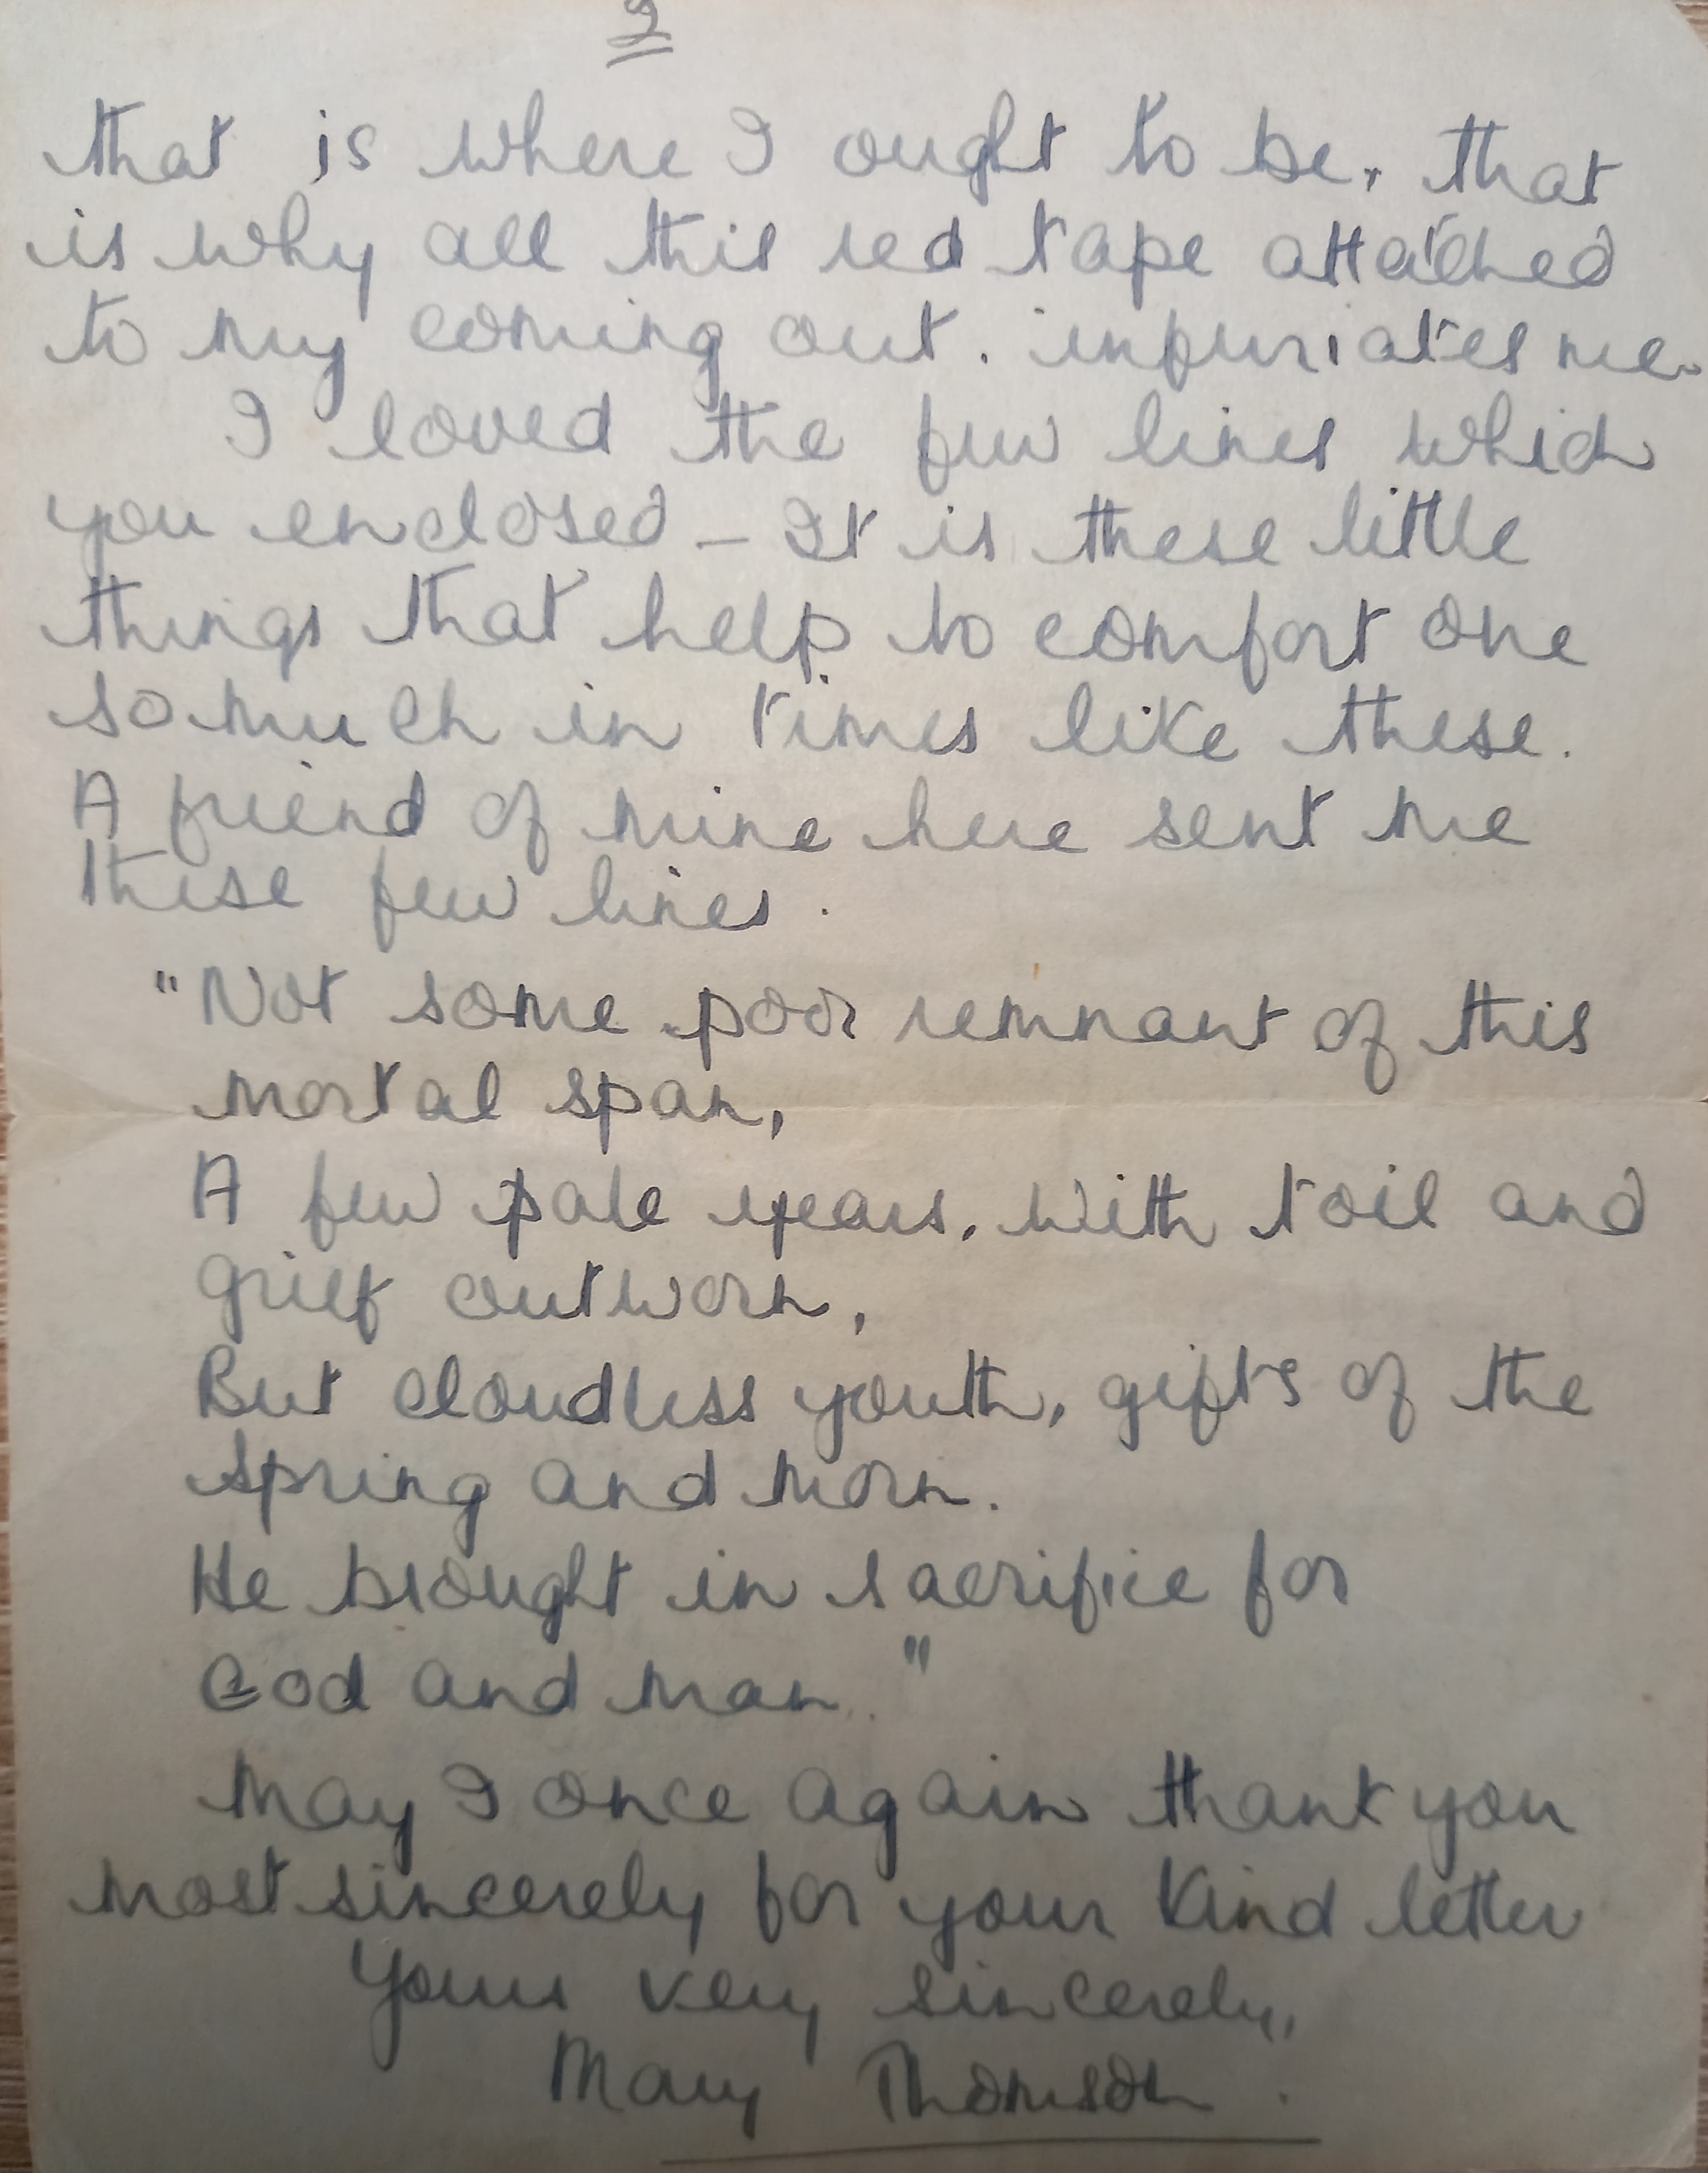 2
that is where I ought to be, that
is why all this red tape attached
to my coming out. infuriates me.
I loved the few lines which
you enclosed - It is these little
things that help to comfort one
so much in times like these.
A friend of mine here sent me
these few lines.
"Not some poor remnant of this
mortal span,
A few pale years, with toil and
grief outworn,
But cloudless youth, gifts of the
spring and morn.
He brought in sacrifice for
God and man."
May I once again thank you
most sincerely for your kind letter
Yours very sincerely,
Mary Thomson.